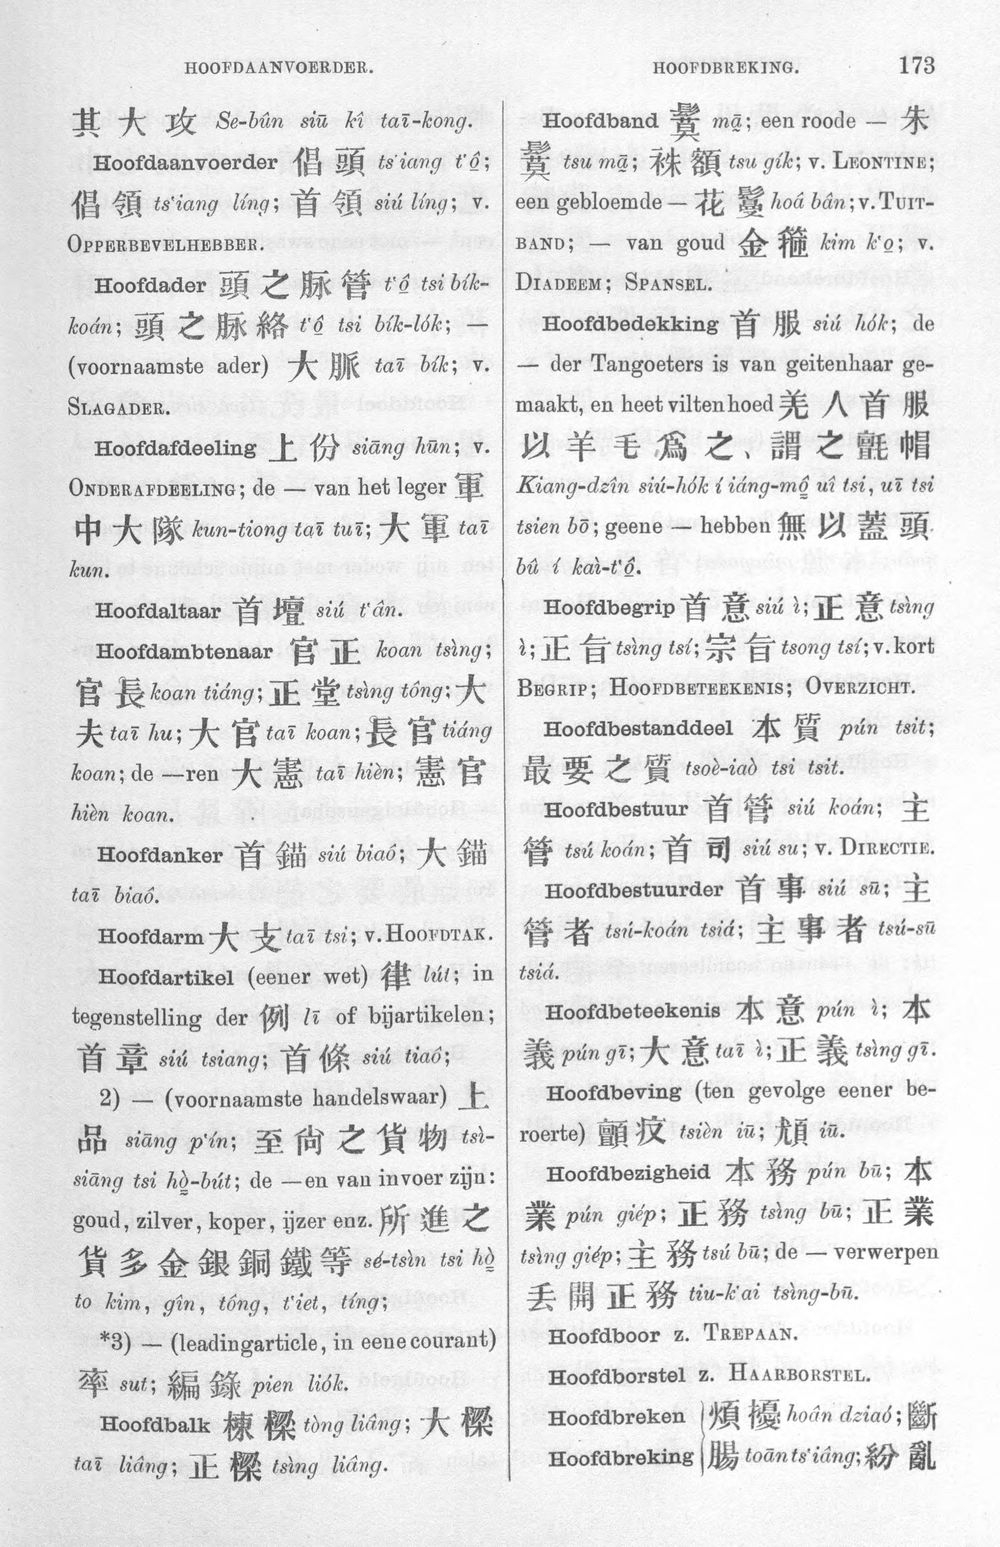 HOOFDAANVOERDER.
HOOFDBREKING.
173
其大攻 Se-bûn siū kî taī-kong.
Hoofdaanvoerder 倡頭 ts‘iang t‘ô̤;
倡領 ts‘iang líng; 首領 siú líng; v.
OPPERBEVELHEBBER.
Hoofdader 頭之脉管 t‘ô̤ tsi bík-
koán; 頭之脉絡 t‘ô̤ tsi bík-lók; —
(voornaamste ader) 大脈 taī bík; v.
SLAGADER.
Hoofdafdeeling 上份 siāng hūn; v.
ONDERAFDEELING; de — van het leger 軍
中大隊 kun-tiong taī tuī; 大軍 taī
kun.
Hoofdaltaar 首壇 siú t‘ân.
Hoofdambtenaar 官正 koan tsìng;
官長 koan tiáng; 正堂 tsìng tông; 大
夫 taī hu; 大官 taī koan; 長官 tiáng
koan; de —ren 大憲 taī hièn; 憲官
hièn koan.
Hoofdanker 首錨 siú biaô; 大錨
taī biaô.
Hoofdarm 大支 taī tsi; v. HOOFDTAK.
Hoofdartikel (eener wet) 律 lút; in
tegenstelling der 例 lī of bijartikelen;
首章 siú tsiang; 首條 siú tiaô;
2) — (voornaamste handelswaar) 上
品 siāng p‘ín; 至尙之貨物 tsì-
siāng tsi hò̤-bút; de —en van invoer zijn:
goud, zilver, koper, ijzer enz. 所進之
貨多金銀銅鐵等 sé-tsìn tsi hò̤
to kim, gîn, tông, t‘iet, tíng;
*3) — (leadingarticle, in eene courant)
率 sut; 編錄 pien liók.
Hoofdbalk 棟樑 tòng liâng; 大樑
taī liâng; 正樑 tsìng liâng.
Hoofdband 鬕 mā̤; een roode — 朱
鬕 tsu mā̤; 袾額 tsu gík; v. LEONTINE;
een gebloemde — 花鬘 hoâ bân; v. TUIT-
BAND; — van goud 金箍 kim k‘o̤; v.
DIADEEM; SPANSEL.
Hoofdbedekking 首服 siú hók; de
— der Tangoeters is van geitenhaar ge-
maakt, en heet viltenhoed 羌人首服
以羊毛爲之、謂之氈帽
Kiang-dzîn siú-hók í iáng-mô̤ uî tsi, uī tsi
tsien bō; geene — hebben 無以蓋頭
bû í kaì-t‘ô̤.
Hoofdbegrip 首意 siú ì; 正意 tsìng
ì; 正旨 tsìng tsí; 宗旨 tsong tsí; v. kort
BEGRIP; HOOFDBETEEKENIS; OVERZICHT.
Hoofdbestanddeel 本質 pún tsit;
最要之質 tsoè-iaò tsi tsit.
Hoofdbestuur 首管 siú koán; 主
管 tsú koán; 首司 siú su; v. DIRECTIE.
Hoofdbestuurder 首事 siú sū; 主
管者 tsú-koán tsiá; 主事者 tsú-sū
tsiá.
Hoofdbeteekenis 本意 pún ì; 本
義 pún gī; 大意 taī ì; 正義 tsìng gī.
Hoofdbeving (ten gevolge eener be-
roerte) 顫疫 tsièn iū; 頄 iū.
Hoofdbezigheid 本務 pún bū; 本
業 pún giép; 正務 tsìng bū; 正業
tsìng giép; 主務 tsú bū; de — verwerpen
丢開正務 tiu-k‘ai tsìng-bū.
Hoofdboor z. TREPAAN.
Hoofdborstel z. HAARBORSTEL.
Hoofdbreken 煩擾 hoân dziaó; 斷
Hoofdbreking 腸 toān ts‘iâng; 紛亂